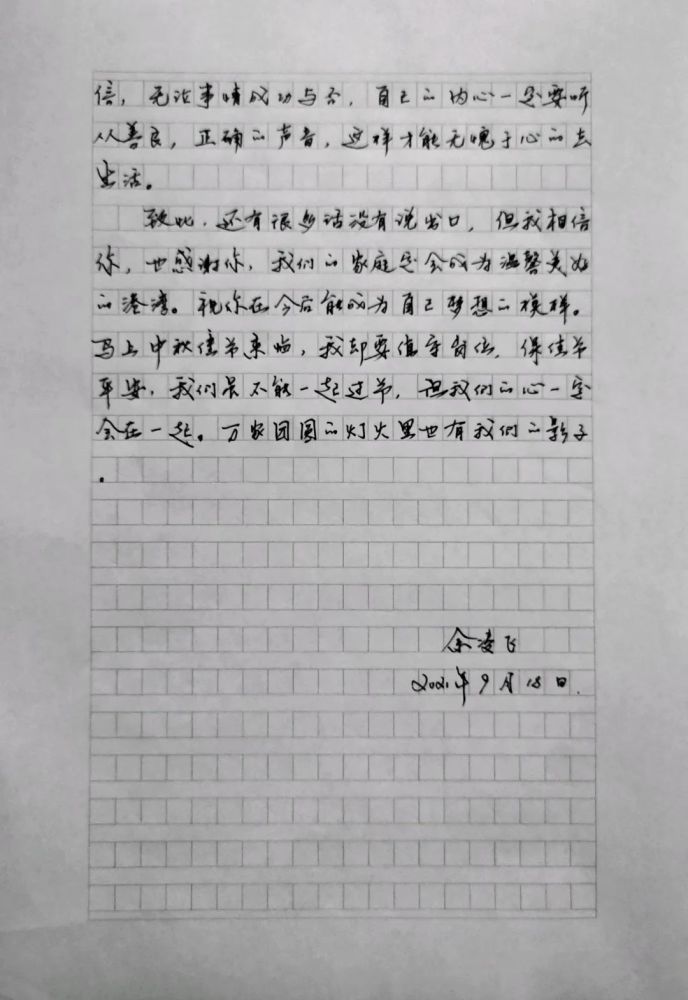 信，无论事情成功与否，自己的内心一定要听
从善良，正确的声音，这样才能无愧于心的去
生活。
致此，还有很多话没有说出口，但我相信
你，也感谢你，我们的家庭定会成为温馨美好
的港湾。祝你在今后能成为自己梦想的模样。
马上中秋佳节来临，我却要值守岗位，保佳节
平安，我们虽不能一起过节，但我们的心一定
会在一起。万家团圆的灯火里也有我们的影子
.
余凌飞
2021年9月18日.